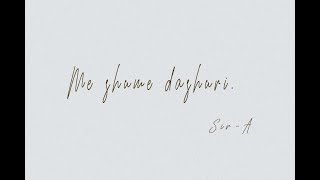 Me shume dashuri.
Sir-A